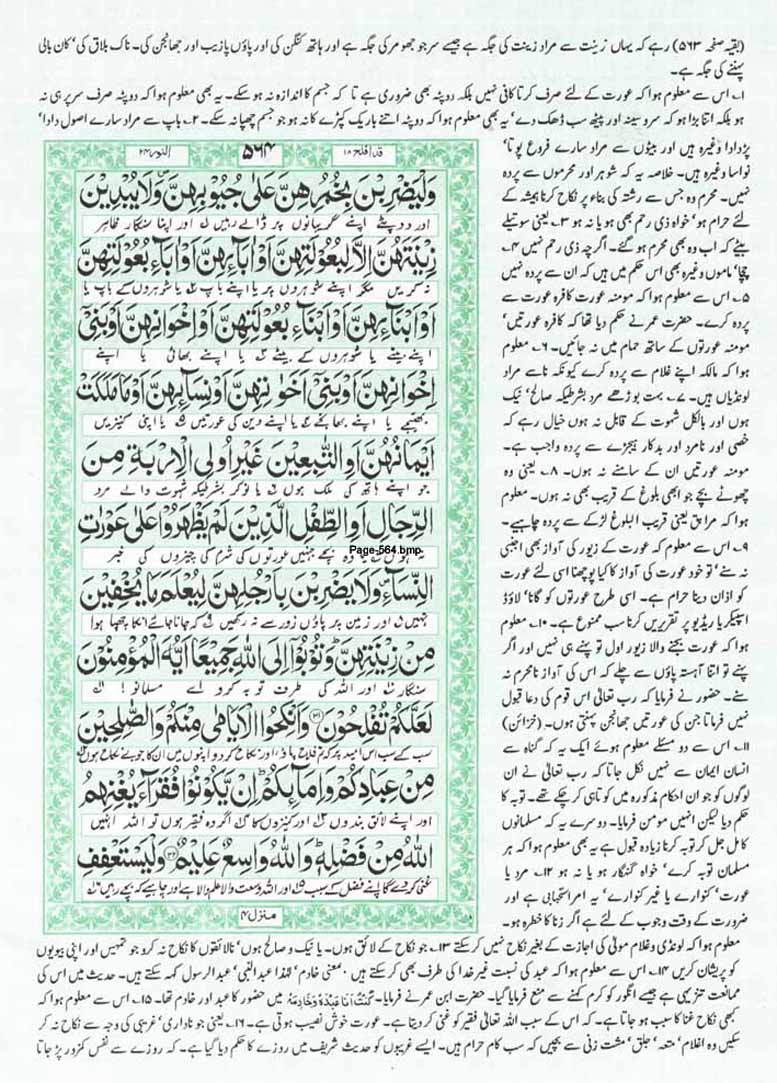 (بقیہ صفحہ ۵۶۳) رہے کہ یہاں زینت سے مراد زینت کی جگہ ہے جیسے سر جو جھومر کی جگہ ہے اور ہاتھ کنگن کی اور پاؤں پازیب اور جھانجن کی۔ ناک بلاق کی' کان بالی
پہننے کی جگہ ہے۔
۱۔ اس سے معلوم ہوا کہ عورت کے لئے صرف کرتا کافی نہیں بلکہ دوپٹہ بھی ضروری ہے تا کہ جسم کا اندازہ نہ ہو سکے۔ یہ بھی معلوم ہوا کہ دوپٹہ صرف سر پر ہی نہ
ہو بلکہ اتنا بڑا ہو کہ سر و سینہ اور پیٹھ سب ڈھک دے' یہ بھی معلوم ہوا کہ دوپٹہ اتنے باریک کپڑے کا نہ ہو جو جسم چھپا نہ سکے۔ ۲۔ باپ سے مراد سارے اصول دادا'
پڑدادا وغیرہ ہیں اور بیٹوں سے مراد سارے فروع پوتا'
نواسا وغیرہ ہیں۔ خلاصہ یہ کہ شوہر اور محرموں سے پردہ
نہیں۔ محرم وہ جس سے رشتہ کی بناء پر نکاح کرنا ہمیشہ کے
لئے حرام ہو' خواہ ذی رحم بھی ہو یا نہ ہو ۳۔ یعنی سوتیلے
بیٹے کہ اب وہ بھی محرم ہو گئے۔ اگرچہ ذی رحم نہیں ۴۔
چچا' ماموں وغیرہ بھی اس حکم میں ہیں کہ ان سے پردہ نہیں
۵۔ اس سے معلوم ہوا کہ مومنہ عورت کافرہ عورت سے
پردہ کرے۔ حضرت عمر نے حکم دیا تھا کہ کافرہ عورتیں'
مومنہ عورتوں کے ساتھ حمام میں نہ جائیں۔ ۶۔ معلوم
ہوا کہ مالکہ اپنے غلام سے پردہ کرے کیونکہ نا سے مراد
لونڈیاں ہیں۔ ۷۔ بہت بوڑھے مرد بشرطیکہ صالح' نیک
ہوں اور بالکل شہوت کے قابل نہ ہوں خیال رہے کہ
خصی اور نامرد اور بدکار ہیجڑے سے پردہ واجب ہے۔
مومنہ عورتیں ان کے سامنے نہ ہوں۔ ۸۔ یعنی وہ
چھوٹے بچے جو ابھی بلوغ کے قریب بھی نہ ہوں۔ معلوم
ہوا کہ مراہق یعنی قریب البلوغ لڑکے سے پردہ چاہیے۔
۹۔ اس سے معلوم کہ عورت کے زیور کی آواز بھی اجنبی
نہ سنے' تو خود عورت کی آواز کا کیا پوچھنا اسی لئے عورت
کو اذان دینا حرام ہے۔ اسی طرح عورتوں کو گانا' لاؤڈ
اسپیکر یا ریڈیو پر تقریریں کرنا سب ممنوع ہے۔ ۱۰۔ معلوم
ہوا کہ عورت بجنے والا زیور اول تو پہنے ہی نہیں اور اگر
پہنے تو اتنا آہستہ پاؤں سے چلے کہ اس کی آواز نامحرم نہ
سنے۔ حضور نے فرمایا کہ رب تعالیٰ اس قوم کی دعا قبول
نہیں فرماتا جن کی عورتیں جھانجن پہنتی ہوں۔ (خزائن)
۱۱۔ اس سے دو مسئلے معلوم ہوئے ایک یہ کہ گناہ سے
انسان ایمان سے نہیں نکل جاتا کہ رب تعالیٰ نے ان
لوگوں کو جو ان احکام مذکورہ میں کوتاہی کر چکے تھے۔ توبہ کا
حکم دیا لیکن انہیں مومن فرمایا۔ دوسرے یہ کہ مسلمانوں
کا مل جل کر توبہ کرنا زیادہ قبول ہے یہ بھی معلوم ہوا کہ ہر
مسلمان توبہ کرے' خواہ گنہگار ہو یا نہ ہو ۱۲۔ مرد یا
عورت' کنوارے یا غیر کنوارے' یہ امر استحبابی ہے اور
ضرورت کے وقت وجوب کے لئے ہے اگر زنا کا خطرہ ہو۔
قد افلح ۱۸
۵۶۴
النور ۲۴
وَلْيَضْرِبْنَ بِخُمُرِهِنَّ عَلٰى جُيُوْبِهِنَّ وَلَا يُبْدِيْنَ
اور دوپٹے اپنے گریبانوں پر ڈالے رہیں اور اپنا سنگار ظاہر
زِيْنَتَهُنَّ اِلَّا لِبُعُوْلَتِهِنَّ اَوْ اٰبَآئِهِنَّ اَوْ اٰبَآءِ بُعُوْلَتِهِنَّ
نہ کریں مگر اپنے شوہروں پر یا اپنے باپ یا شوہروں کے باپ یا
اَوْ اَبْنَآئِهِنَّ اَوْ اَبْنَآءِ بُعُوْلَتِهِنَّ اَوْ اِخْوَانِهِنَّ اَوْ بَنِيْۤ
اپنے بیٹے یا شوہروں کے بیٹے یا اپنے بھائی یا اپنے
اِخْوَانِهِنَّ اَوْ بَنِيْۤ اَخَوٰتِهِنَّ اَوْ نِسَآئِهِنَّ اَوْ مَا مَلَكَتْ
بھتیجے یا اپنے بھانجے یا اپنے دین کی عورتیں یا اپنی کنیزیں
اَيْمَانُهُنَّ اَوِ التّٰبِعِيْنَ غَيْرِ اُولِي الْاِرْبَةِ مِنَ
جو اپنے ہاتھ کی ملک ہوں یا نوکر بشرطیکہ شہوت والے مرد
الرِّجَالِ اَوِ الطِّفْلِ الَّذِيْنَ لَمْ يَظْهَرُوْا عَلٰى عَوْرٰتِ
Page-564.bmp
نہ ہوں یا وہ بچے جنہیں عورتوں کی شرم کی چیزوں کی خبر
النِّسَآءِ وَلَا يَضْرِبْنَ بِاَرْجُلِهِنَّ لِيُعْلَمَ مَا يُخْفِيْنَ
نہیں اور زمین پر پاؤں زور سے نہ رکھیں کہ جانا جائے انکا چھپا ہوا
مِنْ زِيْنَتِهِنَّ وَتُوْبُوْۤا اِلَى اللّٰهِ جَمِيْعًا اَيُّهَ الْمُؤْمِنُوْنَ
سنگار اور اللہ کی طرف توبہ کرو اے مسلمانو!
لَعَلَّكُمْ تُفْلِحُوْنَ ۝۳۱ وَاَنْكِحُوا الْاَيَامٰى مِنْكُمْ وَالصّٰلِحِيْنَ
سب کے سب اس امید پر کہ تم فلاح پاؤ اور نکاح کر دو اپنوں میں ان کا جو بے نکاح ہوں
مِنْ عِبَادِكُمْ وَاِمَآئِكُمْ اِنْ يَّكُوْنُوْا فُقَرَآءَ يُغْنِهِمُ
اور اپنے لائق بندوں اور کنیزوں کا اگر وہ فقیر ہوں تو اللہ انہیں
اللّٰهُ مِنْ فَضْلِهٖ وَاللّٰهُ وَاسِعٌ عَلِيْمٌ ۝۳۲ وَلْيَسْتَعْفِفِ
غنی کر دے گا اپنے فضل کے سبب اور اللہ وسعت والا علم والا ہے اور چاہیے کہ بچے رہیں
منزل ۴
معلوم ہوا کہ لونڈی و غلام مولیٰ کی اجازت کے بغیر نکاح نہیں کر سکتے ۱۳۔ جو نکاح کے لائق ہوں۔ یا نیک و صالح ہوں' نالائقوں کا نکاح نہ کرو جو تمہیں اور اپنی بیویوں
کو پریشان کریں ۱۴۔ اس سے معلوم ہوا کہ عبد کی نسبت غیر خدا کی طرف بھی کر سکتے ہیں' معنی خادم' لہٰذا عبدالنبی' عبدالرسول کہہ سکتے ہیں۔ حدیث میں اس کی
ممانعت تنزیہی ہے جیسے انگور کو کرم کہنے سے منع فرمایا گیا۔ حضرت ابن عمر نے فرمایا۔ كُنْتُ اَنَا عَبْدُهٗ وَخَادِمُهٗ میں حضور کا عبد اور خادم تھا۔ ۱۵۔ اس سے معلوم ہوا کہ
کبھی نکاح غنا کا سبب ہو جاتا ہے۔ کہ اس کے سبب اللہ تعالیٰ فقیر کو غنی کر دیتا ہے۔ عورت خوش نصیب ہوتی ہے۔ ۱۶۔ یعنی جو ناداری' غریبی کی وجہ سے نکاح نہ کر
سکیں وہ اغلام' متعہ' جلق' مشت زنی سے بچیں کہ سب کام حرام ہیں۔ ایسے غریبوں کو حدیث شریف میں روزے کا حکم دیا گیا ہے۔ کہ روزے سے نفس کمزور پڑ جاتا